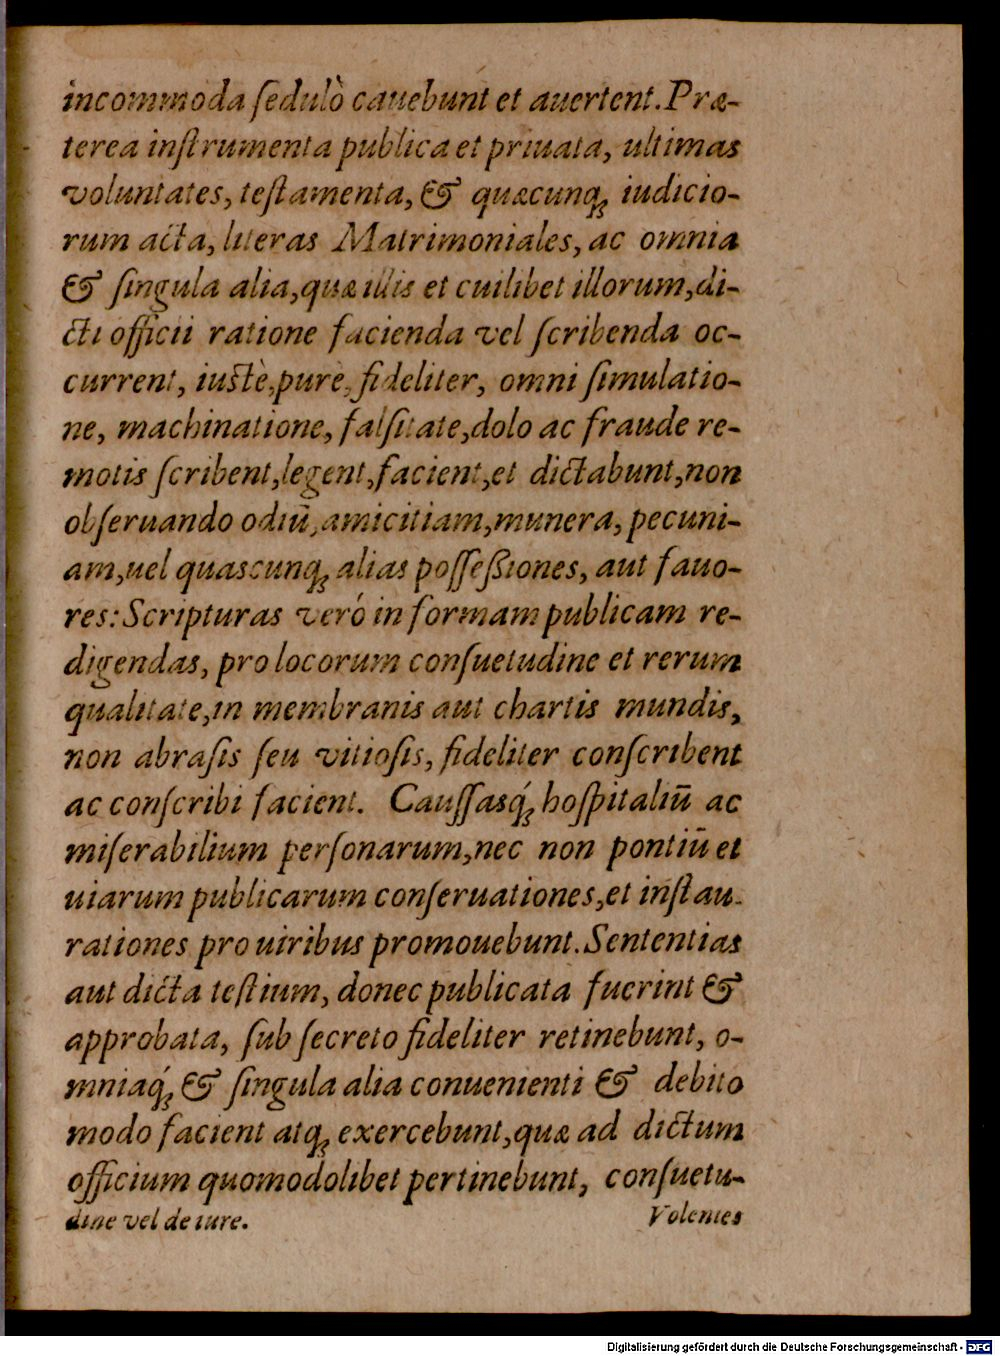 incommoda ſedulò cauebunt et auertent. Præ-
terea inſtrumenta publica et priuata, ultimas
voluntates, teſtamenta, & quæcunq́ꝫ iudicio-
rum acta, literas Matrimoniales, ac omnia
& ſingula alia, quæ illis et cuilibet illorum, di-
cti officii ratione facienda vel ſcribenda oc-
current, iuſtè, pure, fideliter, omni ſimulatio-
ne, machinatione, falſitate, dolo ac fraude re-
motis ſcribent, legent, facient, et dictabunt, non
obſeruando odiū, amicitiam, munera, pecuni-
am, uel quascunqꝫ alias poſſeßiones, aut fauo-
res: Scripturas veró in formam publicam re-
digendas, pro locorum conſuetudine et rerum
qualitate, in membranis aut chartis mundis,
non abraſis ſeu vitioſis, fideliter conſcribent
ac conſcribi facient. Cauſſasq́ꝫ hoſpitaliū ac
miſerabilium perſonarum, nec non pontiū et
uiarum publicarum conſeruationes, et inſtau-
rationes pro uiribus promouebunt. Sententias
aut dicta teſtium, donec publicata fuerint &
approbata, ſub ſecreto fideliter retinebunt, o-
mniaq́ꝫ & ſingula alia conuenienti & debito
modo facient atqꝫ exercebunt, quæ ad dictum
officium quomodolibet pertinebunt, conſuetu-
dine vel de iure. Volentes
Digitalisierung gefördert durch die Deutsche Forschungsgemeinschaft - DFG